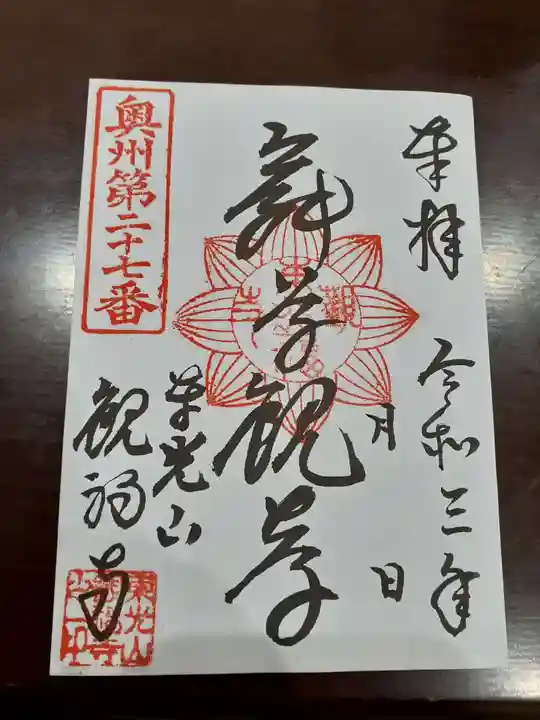 奉拝
令和三年
月
日
観音
東光山
観福寺
奥州第二十七番
東光山